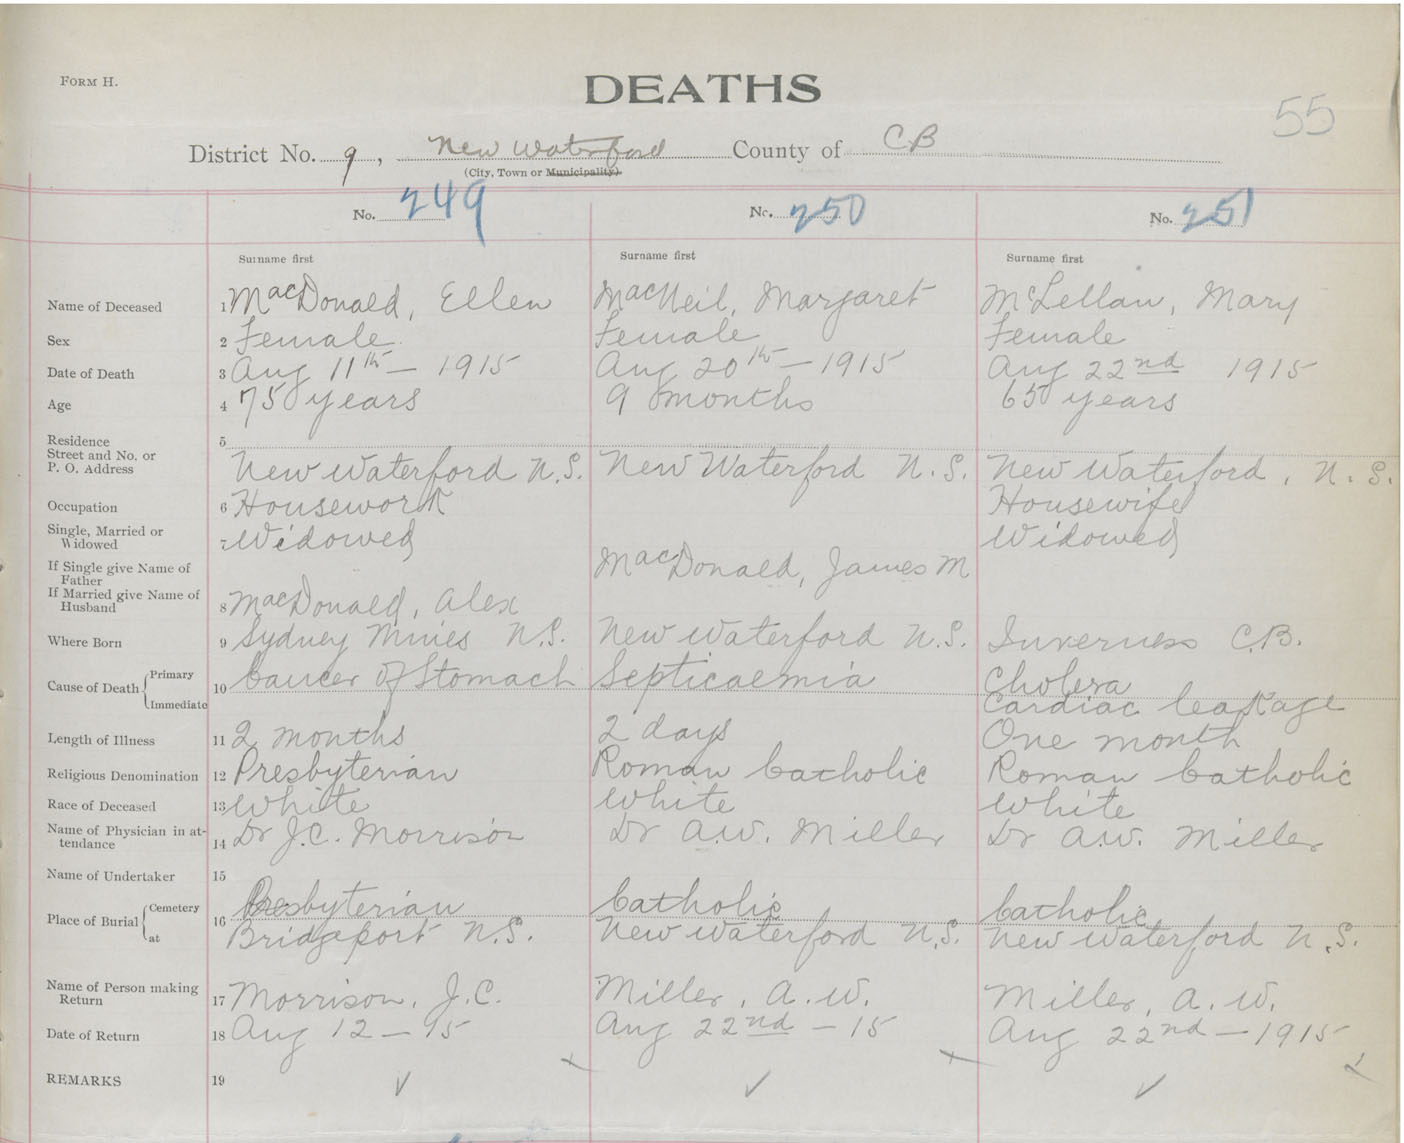 FORM H.
DEATHS
55
District No. 9, New Waterford County of CB
(City, Town or Municipality)
No. 249 No. 250 No. 251
Surname first Surname first Surname first
Name of Deceased 1 MacDonald, Ellen MacNeil, Margaret McLellan, Mary
Sex 2 Female Female Female
Date of Death 3 Aug 11th — 1915 Aug 20th — 1915 Aug 22nd 1915
Age 4 75 years 9 months 65 years
Residence 5
Street and No. or
P. O. Address New Waterford N.S. New Waterford N.S. New Waterford, N.S.
Occupation 6 Housework Housewife
Single, Married or
Widowed 7 Widowed Widowed
If Single give Name of
Father MacDonald, James M
If Married give Name of
Husband 8 MacDonald, Alex
Where Born 9 Sydney Mines N.S. New Waterford N.S. Inverness C.B.
Cause of Death Primary 10 Cancer of Stomach Septicaemia Cholera
Immediate Cardiac leakage
Length of Illness 11 2 months 2 days One month
Religious Denomination 12 Presbyterian Roman Catholic Roman Catholic
Race of Deceased 13 White White White
Name of Physician in at-
tendance 14 Dr J.C. Morrison Dr A.W. Miller Dr A.W. Miller
Name of Undertaker 15
Place of Burial Cemetery 16 Presbyterian Catholic Catholic
at Bridgeport N.S. New Waterford N.S. New Waterford N.S.
Name of Person making
Return 17 Morrison, J.C. Miller, A.W. Miller, A.W.
Date of Return 18 Aug 12 — 15 Aug 22nd — 15 Aug 22nd — 1915
REMARKS 19